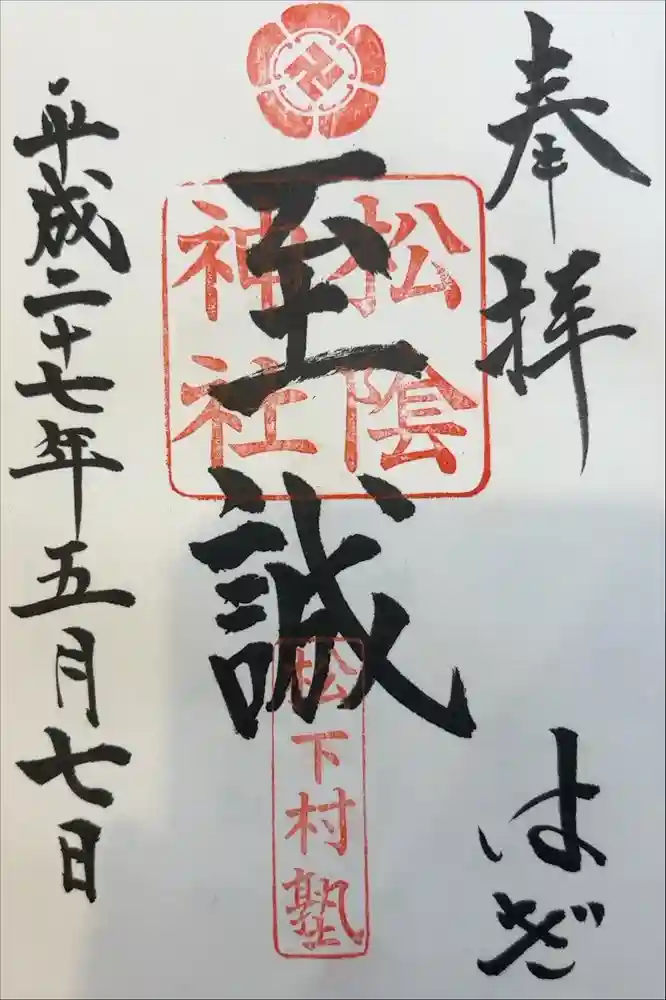 奉拝
はぎ
至誠
松陰
神社
松下村塾
平成二十七年五月七日